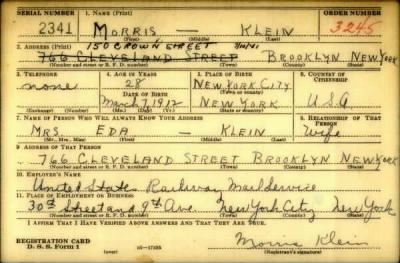 SERIAL NUMBER 1. NAME (Print) ORDER NUMBER
2341 MORRIS — KLEIN 3245
(First) (Middle) (Last)
2. ADDRESS (Print) 150 CROWN STREET
766 CLEVELAND STREET BROOKLYN NEW YORK
(Number and street or R. F. D. number) (Town) (County) (State)
3. TELEPHONE 4. AGE IN YEARS 5. PLACE OF BIRTH 6. COUNTRY OF CITIZENSHIP
none 28 NEW YORK CITY
DATE OF BIRTH (Town or county)
March 7, 1912 NEW YORK U.S.A.
(Exchange) (Number) (Mo.) (Day) (Yr.) (State or country)
7. NAME OF PERSON WHO WILL ALWAYS KNOW YOUR ADDRESS 8. RELATIONSHIP OF THAT PERSON
MRS. EDA — KLEIN Wife
(Mr., Mrs., Miss) (First) (Middle) (Last)
9. ADDRESS OF THAT PERSON
766 CLEVELAND STREET BROOKLYN NEW YORK
(Number and street or R. F. D. number) (Town) (County) (State)
10. EMPLOYER'S NAME
United States Railway Mail Service
11. PLACE OF EMPLOYMENT OR BUSINESS
30th Street and 9th Ave. New York City New York
(Number and street or R. F. D. number) (Town) (County) (State)
I AFFIRM THAT I HAVE VERIFIED ABOVE ANSWERS AND THAT THEY ARE TRUE.
REGISTRATION CARD
D. S. S. Form 1 (over) 16—17105 Morris Klein
(Registrant's signature)